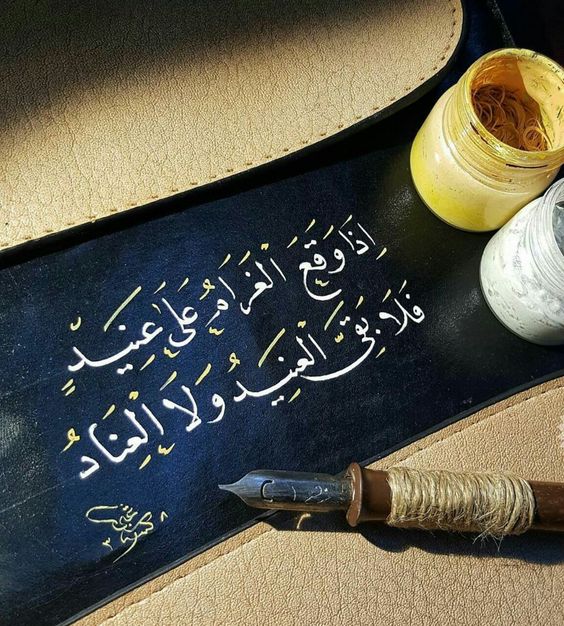 إِذَا وَقَعَ الْغَرَامُ عَلَى عَنِيدٍ
فَلَا بَقِيَ الْعَنِيدُ وَلَا الْعِنَادُ